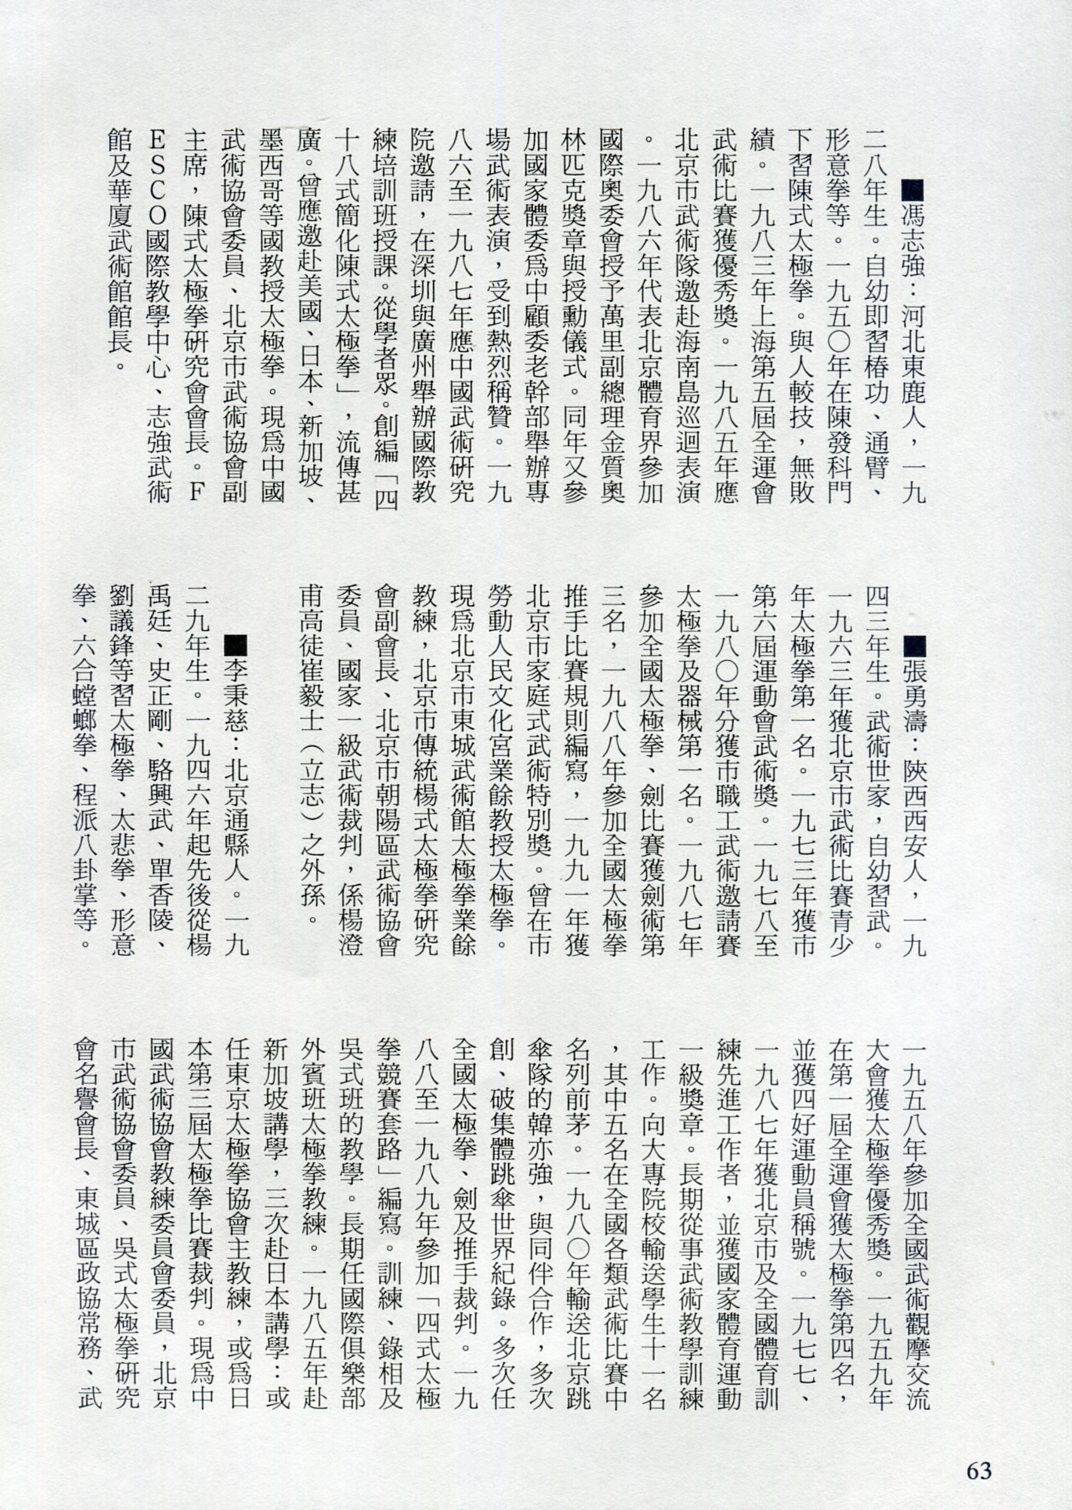 ■馮志強：河北東鹿人，一九
二八年生。自幼即習樁功、通臂、
形意拳等。一九五〇年在陳發科門
下習陳式太極拳。與人較技，無敗
績。一九八三年上海第五屆全運會
武術比賽獲優秀獎。一九八五年應
北京市武術隊邀赴海南島巡迴表演
。一九八六年代表北京體育界參加
國際奧委會授予萬里副總理金質奧
林匹克獎章與授勳儀式。同年又參
加國家體委為中顧委老幹部舉辦專
場武術表演，受到熱烈稱贊。一九
八六至一九八七年應中國武術研究
院邀請，在深圳與廣州舉辦國際教
練培訓班授課。從學者眾。創編「四
十八式簡化陳式太極拳」，流傳甚
廣。曾應邀赴美國、日本、新加坡、
墨西哥等國教授太極拳。現為中國
武術協會委員、北京市武術協會副
主席，陳式太極拳研究會會長。F
ESCO國際教學中心、志強武術
館及華廈武術館館長。
■張勇濤：陝西西安人，一九
四三年生。武術世家，自幼習武。
一九六三年獲北京市武術比賽青少
年太極拳第一名。一九七三年獲市
第六屆運動會武術獎。一九七八至
一九八〇年分獲市職工武術邀請賽
太極拳及器械第一名。一九八七年
參加全國太極拳、劍比賽獲劍術第
三名，一九八八年參加全國太極拳
推手比賽規則編寫，一九九一年獲
北京市家庭式武術特別獎。曾在市
勞動人民文化宮業餘教授太極拳。
現為北京市東城武術館太極拳業餘
教練，北京市傳統楊式太極拳研究
會副會長、北京市朝陽區武術協會
委員、國家一級武術裁判，係楊澄
甫高徒崔毅士（立志）之外孫。
■李秉慈：北京通縣人。一九
二九年生。一九四六年起先後從楊
禹廷、史正剛、駱興武、單香陵、
劉議鋒等習太極拳、太悲拳、形意
拳、六合螳螂拳、程派八卦掌等。
一九五八年參加全國武術觀摩交流
大會獲太極拳優秀獎。一九五九年
在第一屆全運會獲太極拳第四名，
並獲四好運動員稱號。一九七七、
一九八七年獲北京市及全國體育訓
練先進工作者，並獲國家體育運動
一級獎章。長期從事武術教學訓練
工作。向大專院校輸送學生十一名
，其中五名在全國各類武術比賽中
名列前茅。一九八〇年輸送北京跳
傘隊的韓亦強，與同伴合作，多次
創、破集體跳傘世界紀錄。多次任
全國太極拳、劍及推手裁判。一九
八八至一九八九年參加「四式太極
拳競賽套路」編寫。訓練、錄相及
吳式班的教學。長期任國際俱樂部
外賓班太極拳教練。一九八五年赴
新加坡講學，三次赴日本講學：或
任東京太極拳協會主教練，或為日
本第三屆太極拳比賽裁判。現為中
國武術協會教練委員會委員，北京
市武術協會委員、吳式太極拳研究
會名譽會長、東城區政協常務、武
63